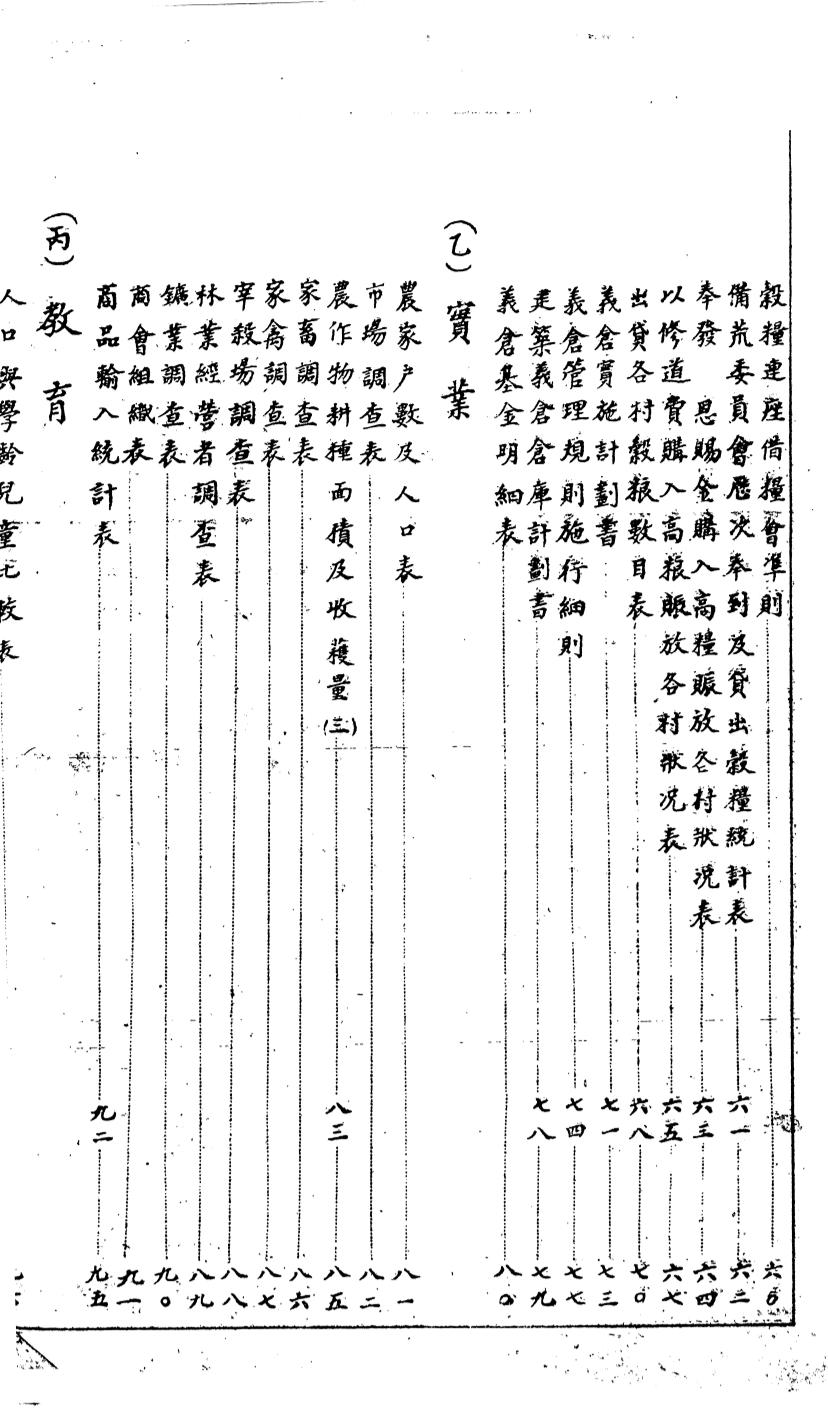 穀糧連座借糧會準則……六〇
備荒委員會歷次奉到及貸出穀糧統計表……六一……六二
奉發 恩賜金購入高糧賑放各村狀況表……六三……六四
以修道費購入高粮賑放各村狀况表……六五……六七
出貸各村穀粮數目表……六八……七〇
義倉實施計劃書……七一……七三
義倉管理規則施行細則……七四……七七
建築義倉倉庫計劃書……七八……七九
義倉基金明細表……八〇
(乙) 實業
農家户數及人口表……八一
市場調查表……八二
農作物耕種面積及收穫量(三)……八三……八五
家畜調查表……八六
家禽調查表……八七
宰殺場調查表……八八
林業經營者調查表……八九
鑛業調查表……九〇
商會組織表……九一
商品輸入統計表……九二……九五
(丙) 教育
人口與學齡兒童比較表……